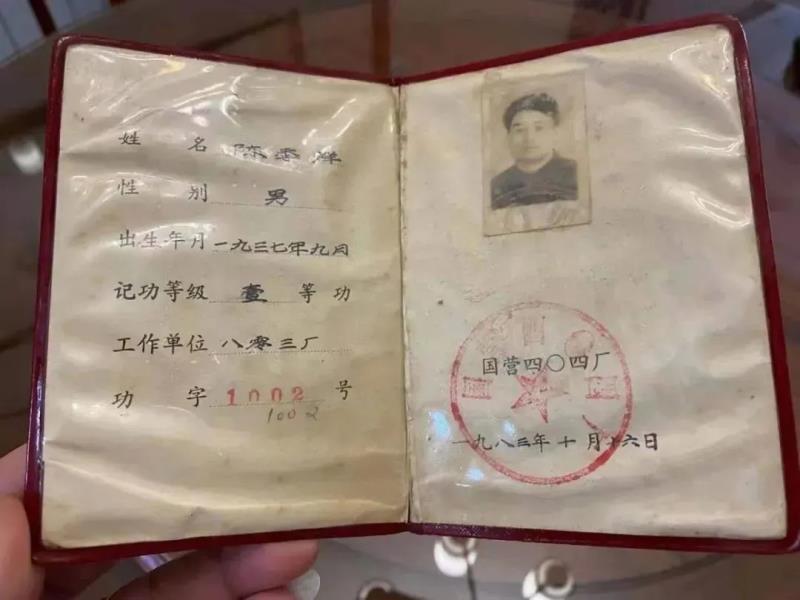 姓 名 陈秀祥
性 别 男
出生年月 一九三七年九月
记功等级 壹 等功
工作单位 八零三厂
功 字 1002 号
1002
国营四〇四厂
一九八三年十月十六日